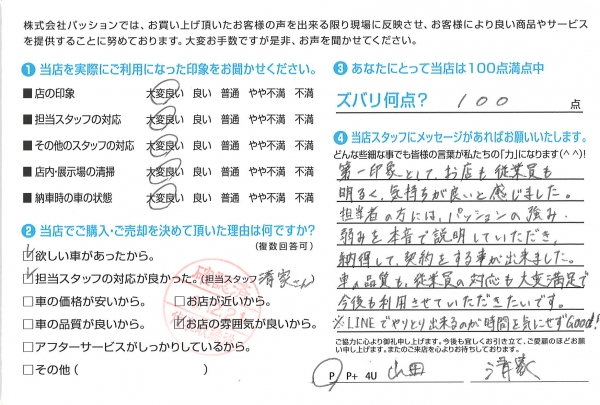 株式会社パッションでは、お買い上げ頂いたお客様の声を出来る限り現場に反映させ、お客様により良い商品やサービス
を提供することに努めております。大変お手数ですが是非、お声を聞かせてください。
1 当店を実際にご利用になった印象をお聞かせください。
■店の印象 大変良い 良い 普通 やや不満 不満
■担当スタッフの対応 大変良い 良い 普通 やや不満 不満
■その他のスタッフの対応 大変良い 良い 普通 やや不満 不満
■店内・展示場の清掃 大変良い 良い 普通 やや不満 不満
■納車時の車の状態 大変良い 良い 普通 やや不満 不満
2 当店でご購入・ご売却を決めて頂いた理由は何ですか?
(複数回答可)
☑欲しい車があったから。
☑担当スタッフの対応が良かった。(担当スタッフ 清家さん)
□車の価格が安いから。 □お店が近いから。
□車の品質が良いから。 ☑お店の雰囲気が良いから。
□アフターサービスがしっかりしているから。
□その他( )
3 あなたにとって当店は100点満点中
ズバリ何点? 100 点
4 当店スタッフにメッセージがあればお願いいたします。
どんな些細な事でも皆様の言葉が私たちの「力」になります(^^)!
第一印象として、お店も従業員も
明るく、気持ちが良いと感じました。
担当者の方には、パッションの強み・
弱みを本音で説明していただき、
納得して、契約をする事が出来ました。
車の品質も、従業員の対応も大変満足で
今後も利用させていただきたいです。
※LINEでやりとり出来るのが時間を気にせずGood!
ご協力に心より御礼申し上げます。今後も宜しくお引き立て、ご愛顧のほどお願
い申し上げます。またのご来店を心よりお待ちしております。
P P+ 4U 山田 清家